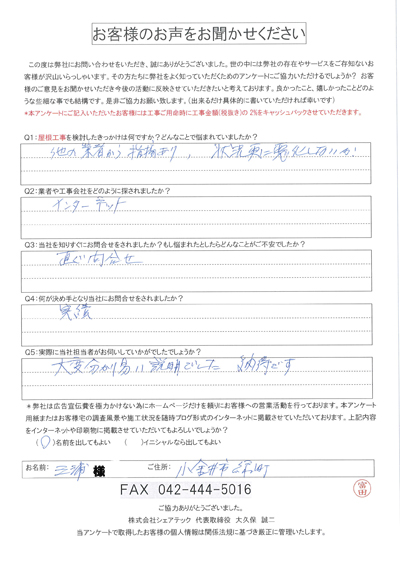 お客様のお声をお聞かせください
この度は弊社にお問い合わせをいただき、誠にありがとうございました。世の中には弊社の存在やサービスをご存知ないお
客様が沢山いらっしゃいます。その方たちに弊社をよく知っていただくためのアンケートにご協力いただけるでしょうか？ お客
様のご意見をお聞かせいただき今後の活動に反映させていただきたいと考えております。良かったこと、嬉しかったことどのよ
うな些細な事でも結構です。是非ご協力お願い致します。（出来るだけ具体的に書いていただければ幸いです）
*本アンケートにご記入いただいたお客様には工事ご用命時に工事金額(税抜き)の 2%をキャッシュバックさせていただきます。
Q1：屋根工事を検討したきっかけは何ですか？どんなことで悩まれていましたか？
他の業者から指摘あり、状況更に悪化しないか
Q2：業者や工事会社をどのように探されましたか？
インターネット
Q3：当社を知りすぐにお問合せをされましたか？もし悩まれたとしたらどんなことがご不安でしたか？
直ぐ問合せ
Q4：何が決め手となり当社にお問合せをされましたか？
実績
Q5：実際に当社担当者がお伺いしていかがでしたでしょうか？
大変分かり易い説明でした 納得です
＊弊社は広告宣伝費を極力かけない為にホームページだけを頼りにお客様への営業活動を行っております。本アンケート
用紙またはお客様宅の調査風景や施工状況を随時ブログ形式のインターネットに掲載させていただいております。上記内容
をインターネットや印刷物に掲載させていただいてもよろしいでしょうか？
（○）名前を出してもよい （ ）イニシャルなら出してもよい
お名前： 三浦 様 ご住所： 小金井市緑町
FAX 042-444-5016
富田
ご協力ありがとうございました。
株式会社シェアテック 代表取締役 大久保 誠二
当アンケートで取得したお客様の個人情報は関係法規に基づき厳正に管理いたします。